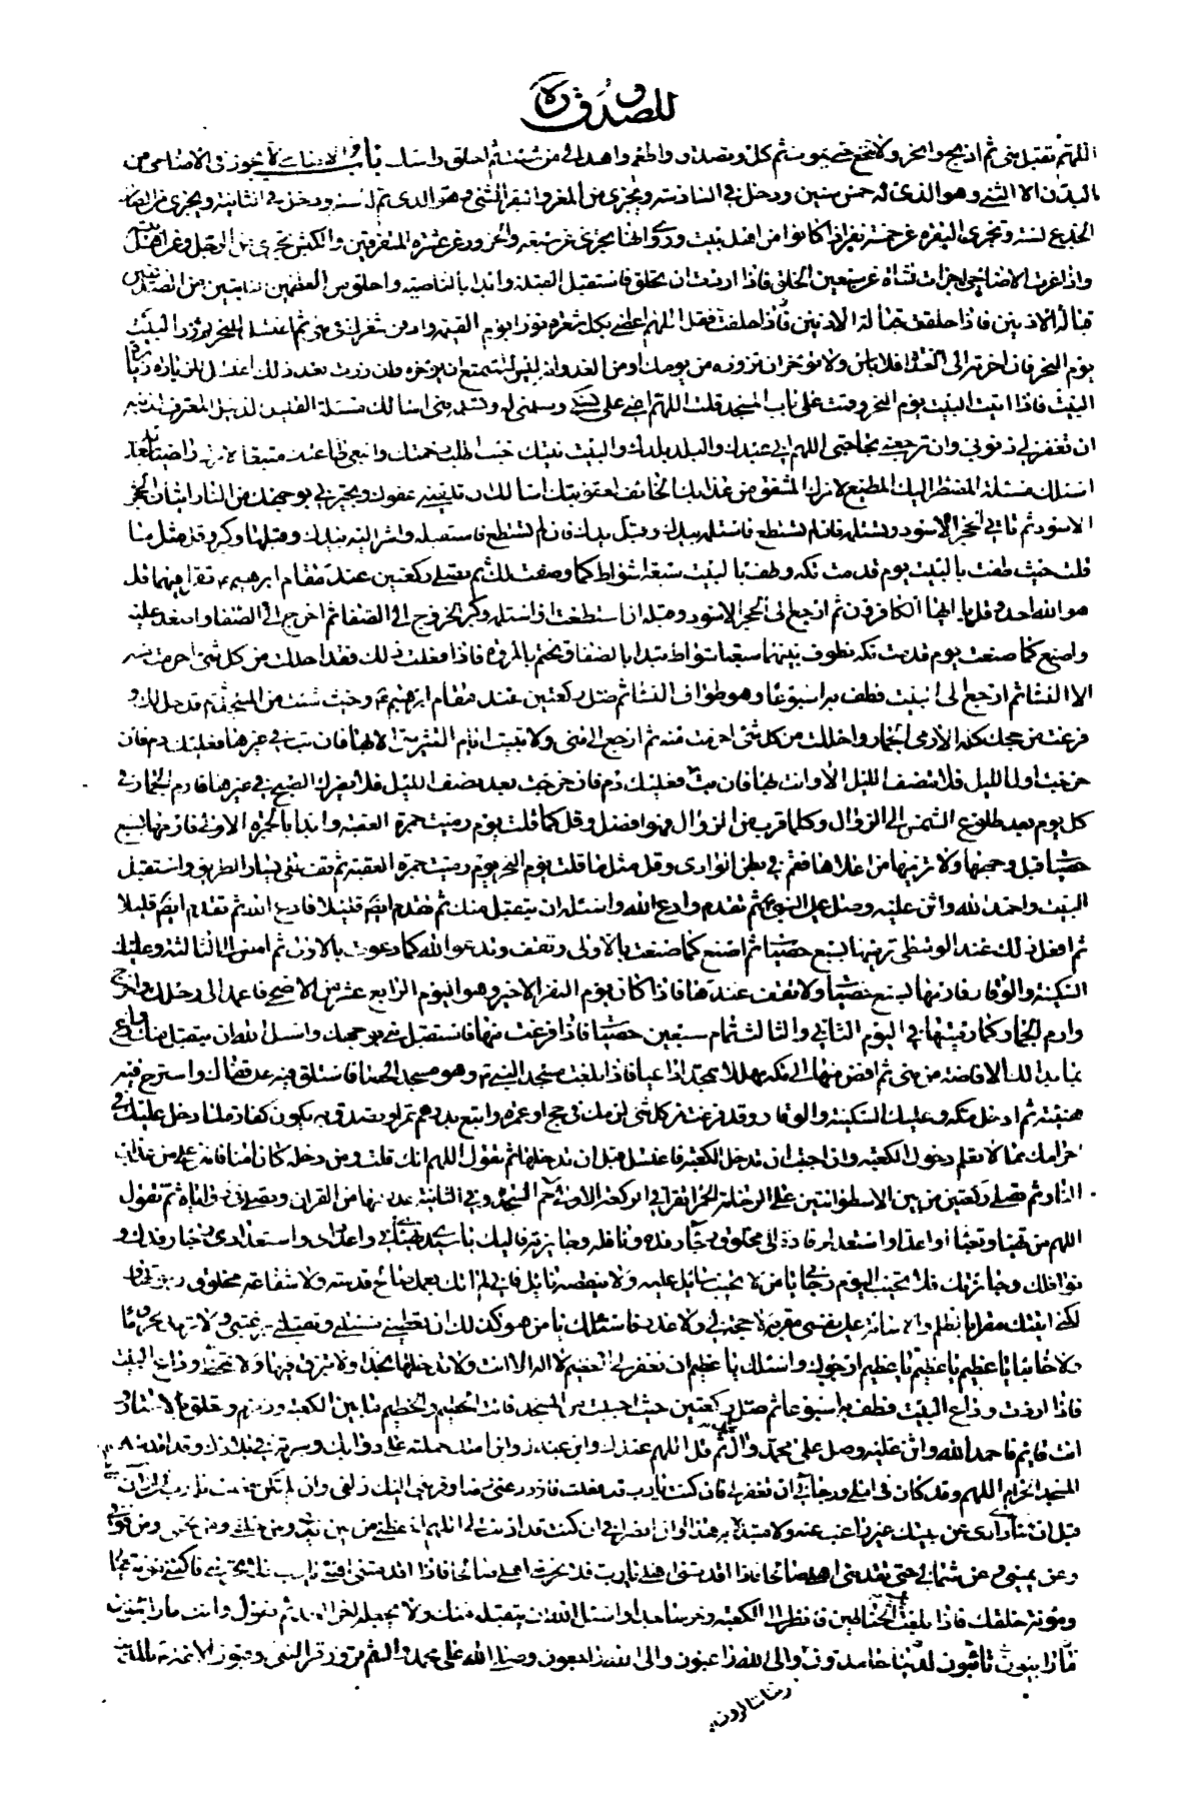 للصدوق ره
اللهم تقبل مني ثم اذبح وانحر ولا تنخع حتى يموت ثم كل وتصدق واطعم واهد الى من شئت ثم احلق راسك باب لا يجوز في الاضاحي من
البدن الا الثني وهو الذي له خمس سنين ودخل في السادسة ويجزي من المعز والبقر الثني وهو الذي تم له سنة ودخل في الثانية ويجزي من الضان
الجذع لسنة وتجزي البقرة عن خمسة نفر اذا كانوا من اهل بيت وروي انها تجزي عن سبعة والجزور عن عشرة متفرقين والكبش يجزي عن الرجل وعن اهل بيته
واذا عزت الاضاحي اجزات شاة عن سبعين الحلق فاذا اردت ان تحلق فاستقبل القبلة وابدا بالناصية واحلق من العظمين النابتين من الصدغين
قبالة الاذنين فاذا حلقت فقل اللهم اعطني بكل شعرة نورا يوم القيمة وادفن شعرك بمنى ثم اغتسل زر البيت
يوم النحر فان اخرته الى الغد فلا باس ولا تؤخر ان تزوره من يومك او من الغد فانه ليس للمتمتع ان يؤخره فان زرت بعد ذلك اعتسل للزيارة زيارة
البيت فاذا اتيت البيت يوم النحر وقمت على باب المسجد قلت اللهم اعني على نسكك وسلمني له وتسلمه مني اسالك مسئلة القليل الذليل المعترف بذنبه
ان تغفر لي ذنوبي وان ترجعني بحاجتي اللهم اني عبدك والبلد بلدك والبيت بيتك جئت اطلب رحمتك وابتغي طاعتك متبعا لامرك راضيا بقدرك
اسئلك مسئلة المضطر اليك المطيع لامرك المشفق من عذابك الخائف لعقوبتك اسالك ان تلقيني عفوك وتجيرني برحمتك من النار اتيان الحجر
الاسود ثم تاتي الحجر الاسود فتستلمه فان لم تستطع فاستلمه بيدك وقبل يدك فان لم تستطع فاستقبله واشر اليه بيدك وقبلها وكبر وقل مثل ما
قلت حيث طفت بالبيت يوم قدمت مكة وطف بالبيت سبعة اشواط كما وصفت لك ثم تصلي ركعتين عند مقام ابرهيم ع تقرا فيهما قل
هو الله احد وقل يا ايها الكافرون ثم ارجع الى الحجر الاسود وقبله ان استطعت او استلمه وكبر الخروج الى الصفا ثم اخرج الى الصفا واصعد عليه
واصنع كما صنعت يوم قدمت مكة تطوف بينهما سبعة اشواط تبدا بالصفا وتختم بالمروة فاذا فعلت ذلك فقد احللت من كل شئ احرمت منه
الا النساء ثم ارجع الى البيت فطف به اسبوعا وهو طواف النساء ثم صل ركعتين عند مقام ابرهيم ع وحيث شئت من المسجد ثم قد حل لك و
فرغت من حجك كله الا رمي الجمار واحللت من كل شئ احرمت منه ثم ارجع الى منى ولا تبيت ايام التشريق الا بها فان بت في غيرها فعليك دم فان
خرجت اول الليل فلا ينتصف الليل الا وانت بها فان بت فعليك دم فان خرجت بعد نصف الليل فلا يضرك الصبح في غيرها وارم الجمار في
كل يوم بعد طلوع الشمس الى الزوال وكلما قرب من الزوال فهو افضل وقل كما قلت يوم رميت جمرة العقبة وابدا بالجمرة الاولى فارمها بسبع
حصيات قبل وجهها ولا ترمها من اعلاها فقم في بطن الوادي وقل مثل ما قلت يوم النحر يوم رميت جمرة العقبة ثم قف على يسار الطريق واستقبل
البيت واحمد الله واثن عليه وصل على النبي ص ثم تقدم وادع الله واسئله ان يتقبل منك ثم تقدم ايضا قليلا فادع الله ثم تقدم ايضا قليلا
ثم افعل ذلك عند الوسطى ترميها بسبع حصيات ثم اصنع كما صنعت بالاولى وتقف وتدعو الله كما دعوت بالاولى ثم امض الى الثالثة وعليك
السكينة والوقار فارمها بسبع حصيات ولا تقف عندها فاذا كان يوم النفر الاخير وهو اليوم الرابع عشر من الاضحى فاعمد الى رحلك واخرج
وارم الجمار كما رميتها في اليوم الثاني والثالث تمام سبعين حصاة فاذا فرغت منها فاستقبل منى بوجهك واسئل الله ان يتقبل منك وادع
بما بدا لك الافاضة من منى ثم افض منها الى مكة مهللا ممجدا داعيا فاذا بلغت مسجد النبي ص وهو مسجد الحصبا فاستلق فيه على قفاك واسترح فيه
هنيئة ثم ادخل مكة وعليك السكينة والوقار وقد فرغت من كل شئ لزمك في حج او عمرة وابتع بدرهم تمرا وتصدق به يكون كفارة لما دخل عليك في
احرامك مما لا تعلم دخول الكعبة وان احببت ان تدخل الكعبة فاغتسل قبل ان تدخلها ثم تقول اللهم انك قلت ومن دخله كان امنا فامني من عذاب
النار ثم تصلي ركعتين بين الاسطوانتين على الرخامة الحمراء تقرا في الركعة الاولى حم السجدة وفي الثانية عدد ايها من القران وتصلي في زواياه ثم تقول
اللهم من تهيا وتعبا او اعد او استعد لوفادة الى مخلوق رجاء رفده ونوافله وجائزته فاليك يا سيدي تهيئتي واعدادي واستعدادي رجاء رفدك و
نوافلك وجائزتك فلا تخيب اليوم رجائي يا من لا يخيب سائل عليه ولا ينقصه نائل فاني لم اتك بعمل صالح قدمته ولا شفاعة مخلوق رجوته
لكني اتيتك مقرا بالظلم والاساءة على نفسي مقر لا حجة لي ولا عذر فاسئلك يا من هو كذلك ان تعطيني مسئلتي وتقلبني برغبتي ولا تردني محروما
ولا خائبا يا عظيم يا عظيم يا عظيم ارجوك واسئلك يا عظيم ان تغفر لي العظيم لا اله الا انت ولا تدخلها بحذاء ولا تبزق فيها ولا تمتخط وداع البيت
فاذا اردت وداع البيت فطف به اسبوعا ثم صل ركعتين حيث احببت من المسجد فائت الحطيم والحطيم ما بين الكعبة وزمزم وتعلق بالاستار
انت قائم فاحمد الله واثن عليه وصل على محمد واله ثم قل اللهم عبدك وابن عبدك وابن امتك حملته على دوابك وسيرته في بلادك وقد اقدمته
المسجد الحرام اللهم وقد كان في املي ورجائي ان تغفر لي فان كنت يا رب قد فعلت فازدد عني رضا وقربني اليك زلفى وان لم تكن فعلت يا رب فمن الان
قبل ان تناى داري عن بيتك غير راغب عنه ولا مستبدل به هذا اوان انصرافي ان كنت قد اذنت لي اللهم احفظني من بين يدي ومن خلفي ومن تحتي ومن فوقي
وعن يميني وعن شمالي حتى تقدمني اهلي صالحا فاذا اقدمتني اهلي يا رب فلا
ومؤنة خلقك فاذا بلغت باب الحناطين فانظر الى الكعبة وخر ساجدا واسئل الله ان يتقبله منك ولا يجعله اخر العهد ثم تقول وانت مار ائبون
تائبون لربنا حامدون والى الله راغبون والى الله راجعون وصلى الله على محمد واله ثم تزور قبر النبي وقبور الائمة بالمدينة